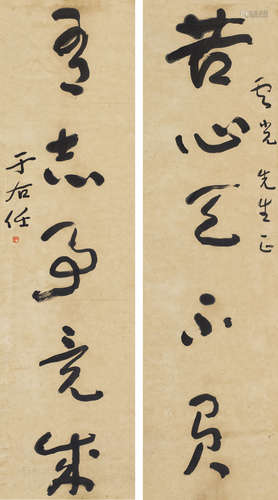 雲光先生正
苦心天不負
有志事竟成
于右任